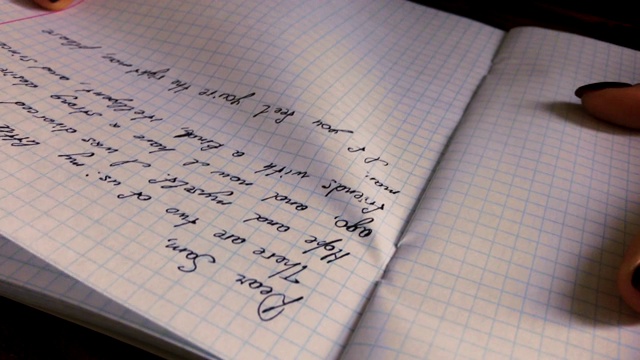 Dear Sam
There are two of us: my little
Hope and myself. I was divorced
ago, and now I have a strong desire
friends with a kind, intelligent, and since
man.
If you feel you're the right man, please